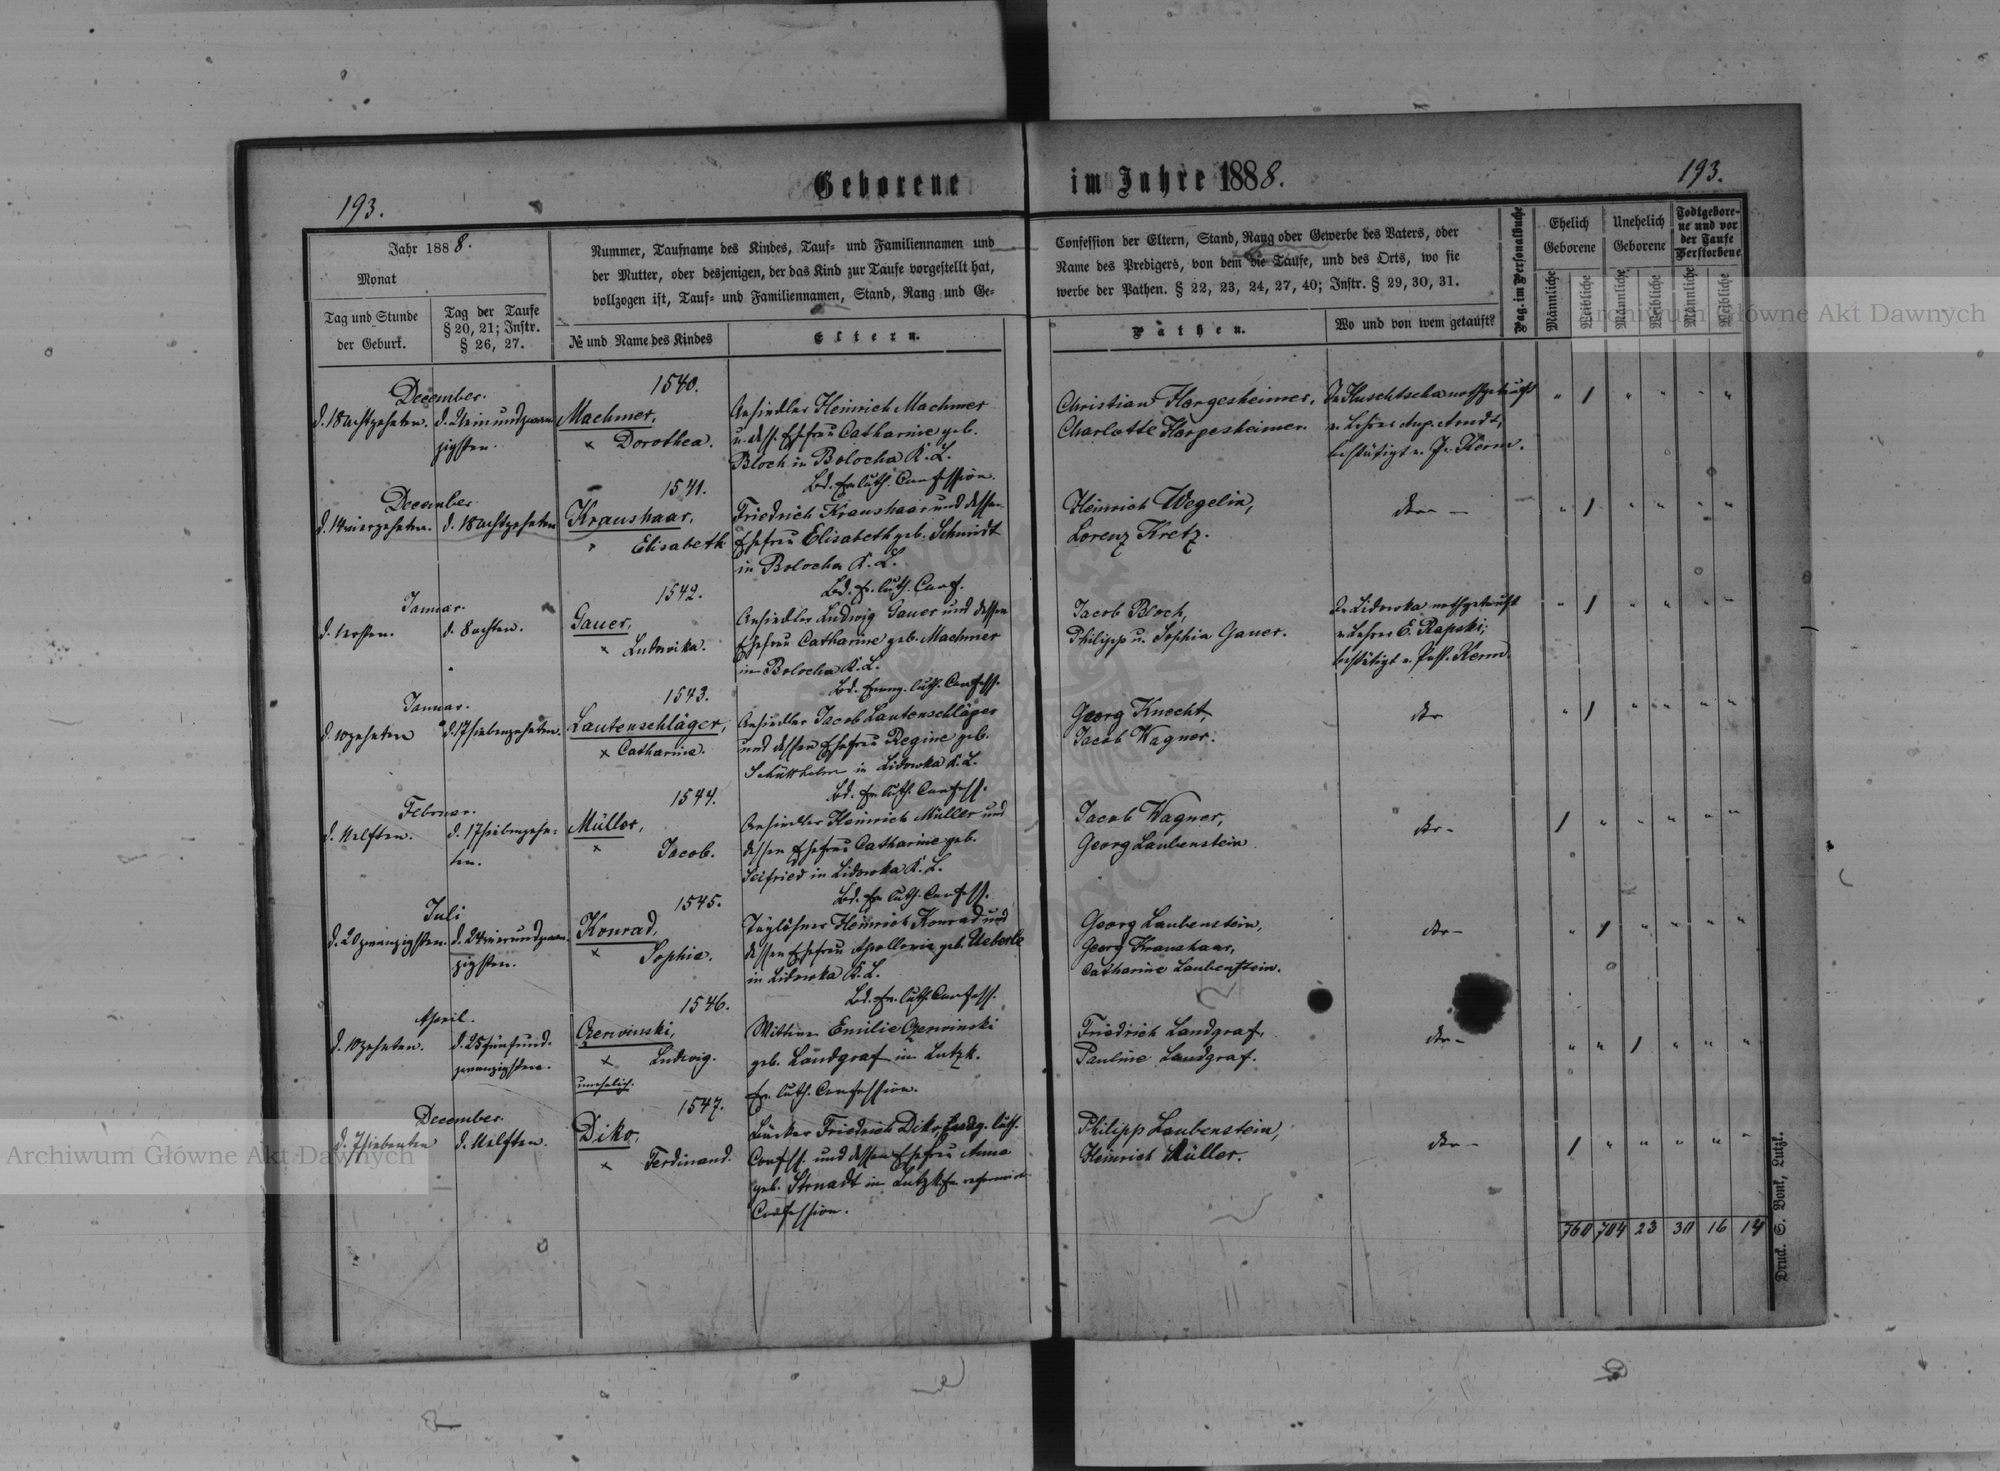 Geborene im Jahre 1888.
193.
193.
Jahr 1888.
Monat
Tag und Stunde
der Geburt.
Tag der Taufe
§ 20, 21; Instr.
§ 26, 27.
Nummer, Taufname des Kindes, Tauf- und Familiennamen und
der Mutter, oder desjenigen, der das Kind zur Taufe vorgestellt hat,
vollzogen ist, Tauf- und Familiennamen, Stand, Rang und Ge-
№ und Name des Kindes
Eltern.
Confession der Eltern, Stand, Rang oder Gewerbe des Vaters, oder
Name des Predigers, von dem die Taufe, und des Orts, wo sie
werbe der Pathen. § 22, 23, 24, 27, 40; Instr. § 29, 30, 31.
Pathen.
Wo und von wem getauft?
Pag. im Personalbuche
Ehelich
Geborene
Unehelich
Geborene
Todtgebore-
ne und vor
der Taufe
Verstorbene
Männliche
Weibliche
Männliche
Weibliche
Männliche
Weibliche
December.
d. 18 achtzehnten.
d. 21 ein und zwan-
zigsten.
1540.
Machmer,
× Dorothea.
Ansiedler Heinrich Machmer
u. dess. Ehefrau Catharine geb.
Bloch in Bolocha K. L.
Bd. Ev. luth. Confession.
Christian Hargesheimer,
Charlotte Hargesheimer.
nothgetauft
v. Lehrer Aug. Arndt,
bestätigt v. P. Kerm.
December
d. 14 vierzehnten.
d. 18 achtzehnten
1541.
Kraushaar,
× Elisabeth
Friedrich Kraushaar und dessen
Ehefrau Elisabeth geb. Schmidt
in Bolocha K. L.
Bd. Ev. luth. Conf.
Heinrich Wegelin,
Lorenz Kretz.
Januar.
d. 1 ersten.
d. 8 achten.
1542.
Gauer,
× Ludwika.
Ansiedler Ludwig Gauer und dessen
Ehefrau Catharine geb. Machmer
in Bolocha K. L.
Bd. Evang. luth. Confess.
Jacob Bloch,
Philipp u. Sophia Gauer.
In Lidowka nothgetauft
v. Lehrer E. Rapski;
bestätigt v. Past. Kerm.
Januar.
d. 10 zehnten
d. 17 siebenzehnten.
1543.
Lautenschläger,
× Catharina.
Ansiedler Jacob Lautenschläger
und dessen Ehefrau Regine geb.
in Lidowka K. L.
Bd. Ev. luth. Confess.
Georg Knecht,
Jacob Wagner.
Februar.
d. 11 elften.
d. 17 siebenzehn-
ten.
1544.
Müller,
× Jacob.
Ansiedler Heinrich Müller und
dessen Ehefrau Catharine geb.
Seifried in Lidowka K. L.
Bd. Ev. luth. Confess.
Jacob Wagner,
Georg Laubenstein.
Juli
d. 20 zwanzigsten.
d. 24 vier und zwan-
zigsten.
1545.
Konrad,
× Sophia.
Taglöhner Heinrich Konrad und
dessen Ehefrau Apollonia geb. Ueberle
in Lidowka K. L.
Bd. Ev. luth. Confess.
Georg Laubenstein,
Georg Kraushaar,
Catharine Laubenstein.
April.
d. 10 zehnten.
d. 25 fünf und
zwanzigsten.
1546.
Gerwinski,
× Ludwig.
unehelich.
Wittwe Emilie Gerwinski
geb. Landgraf in Lutzk.
Ev. luth. Confession.
Friedrich Landgraf,
Pauline Landgraf.
December.
d. 7 siebenten
d. 11 elften.
1547.
Diko,
× Ferdinand.
Bäcker Friedrich Diko, Evang. luth.
Confess. und dessen Ehefrau Anna
geb. Strnadt in Lutzk, Ev. reformirt.
Confession.
Philipp Laubenstein,
Heinrich Müller.
760 704 23 30 16 14
Druck. S. Bonk, Lutzk.
Archiwum Główne Akt Dawnych
Archiwum Główne Akt Dawnych